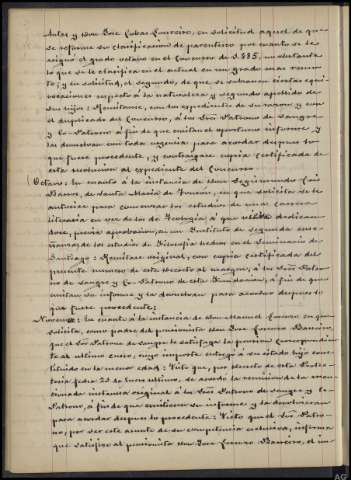 Autos y Don José Cobas Loureiro, en solicitud aquel de que
se reforme su clasificacion de parentesco por cuanto se le
asigna el grado octavo en el Concurso de 1.885, no obstante
lo que se le clasifica en el actual en un grado mas remo-
to; y en solicitud, el segundo, de que se subsanen ciertas equi-
vocaciones respecto á la naturaleza y segundo apellido de
sus hijos: Remítanse, con los expedientes de su razon y con
el duplicado del Concurso, á los Sres Patrono de Sangre
y Co-Patrono á fin de que emitan el oportuno informe y
los devuelvan con toda urgencia para acordar despues lo
que fuere procedente, y contráigase copia certificada de
esta resolucion al expediente del Concurso
Octavo: En cuanto á la instancia de Don Segismundo Luis
de Santa María de en que solicita se le
autorice para conmutar los estudios de una carrera
literaria en vez de los de Teología á que dedicán-
dose, previa aprobacion, en un Instituto de segunda ense-
ñanza, de los estudios de Filosofía hechos en el Seminario de
Santiago: Remítase original, con copia certificada del
presente número de este decreto al margen, á los Sres Patro-
no de sangre y Co-Patrono de esta Fundacion, á fin de que
emitan su informe y la devuelvan para acordar despues lo
que fuere procedente;
Noveno: En cuanto á la instancia de Don Manuel Lorenzo en que
solicita, como padre del pensionista Don José Lorenzo Barreiro,
que el Sr Patrono de sangre le satisfaga la pension correspondien-
te al ultimo curso, cuyo importe entregó a su citado hijo cons-
tituido en la menor edad: Visto que, por decreto de esta Visita-
toría fecha 23 de Enero último, se acordó la remision de la men-
cionada instancia original á los Sres Patrono de sangre y Co-
Patrono, á fin de que emitiesen su informe y la devolvieran
para acordar despues lo procedente: Visto que el Sr Patro-
no, por ser este asunto de su competencia exclusiva, informa
que satisfizo al pensionista Don José Lorenzo Barreiro, el im-